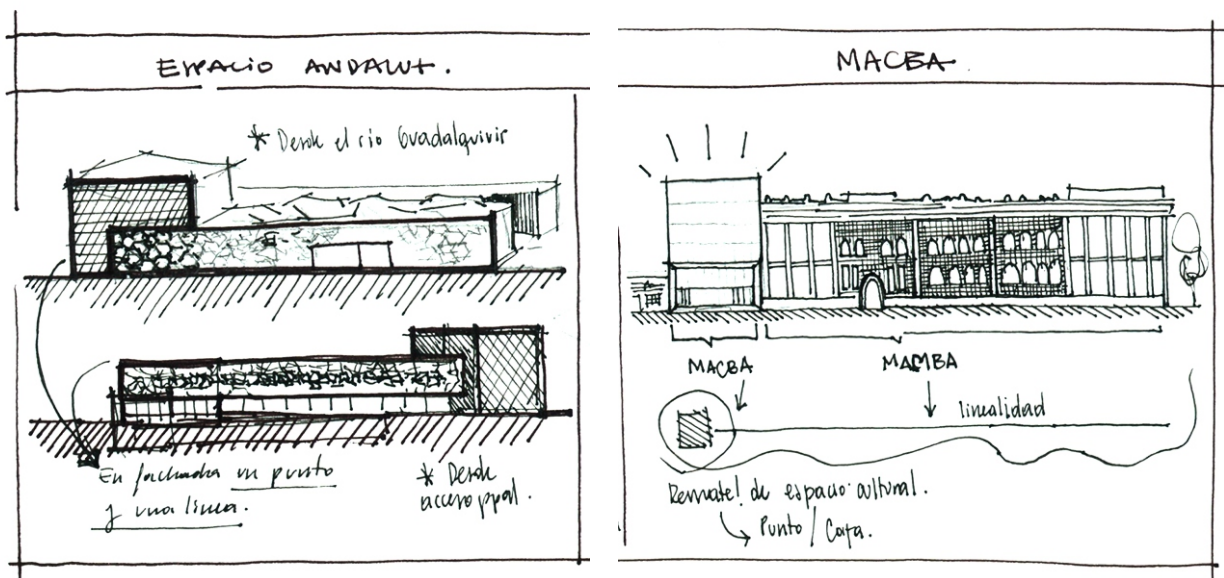 ESPACIO ANDALUZ.
* Desde el río Guadalquivir
En fachada un punto
y una linea.
* Desde
acceso ppal.
MACBA
MACBA
MAMBA
linealidad
Remate! de espacio cultural.
Punto / Caja.